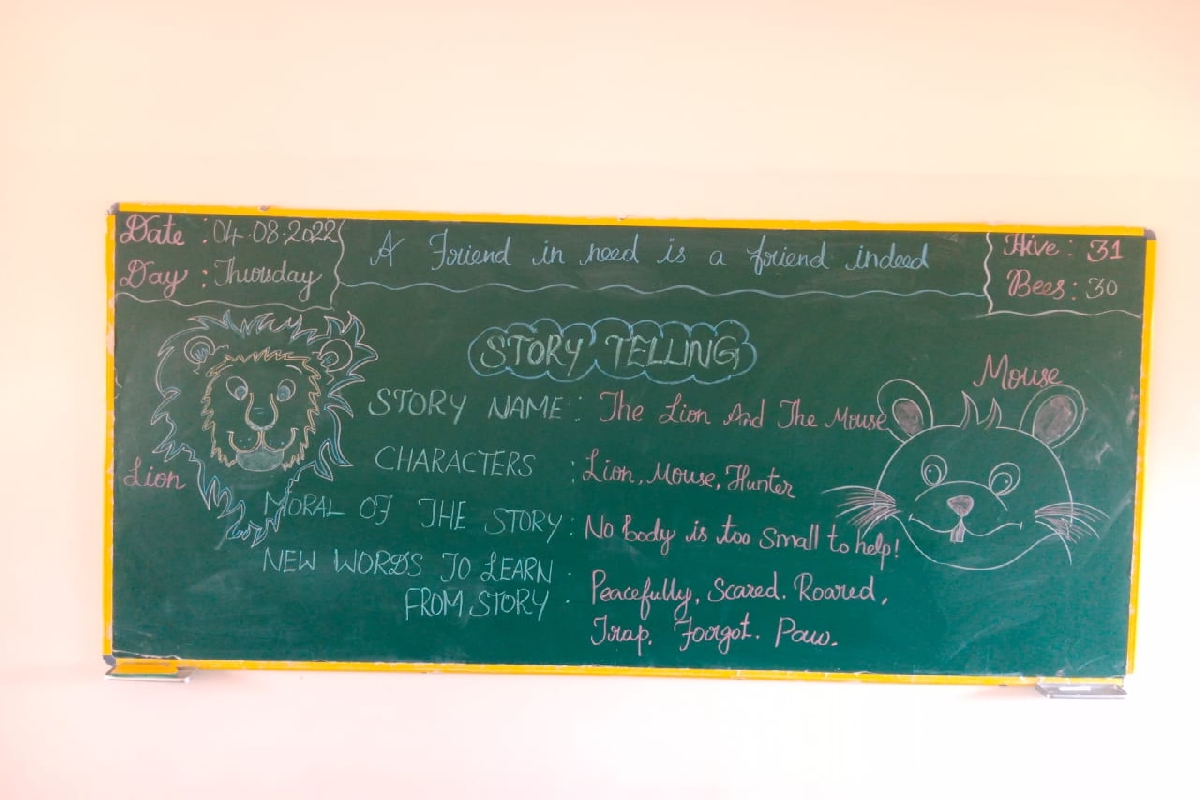 Date : 04.08.2022
Day : Thursday
A Friend in need is a friend indeed
Hive : 31
Bees : 30
STORY TELLING
Lion
Mouse
STORY NAME : The Lion And The Mouse
CHARACTERS : Lion, Mouse, Hunter
MORAL OF THE STORY : No body is too Small to help!
NEW WORDS TO LEARN
FROM STORY : Peacefully, Scared. Roared,
Trap. Forgot. Paw.